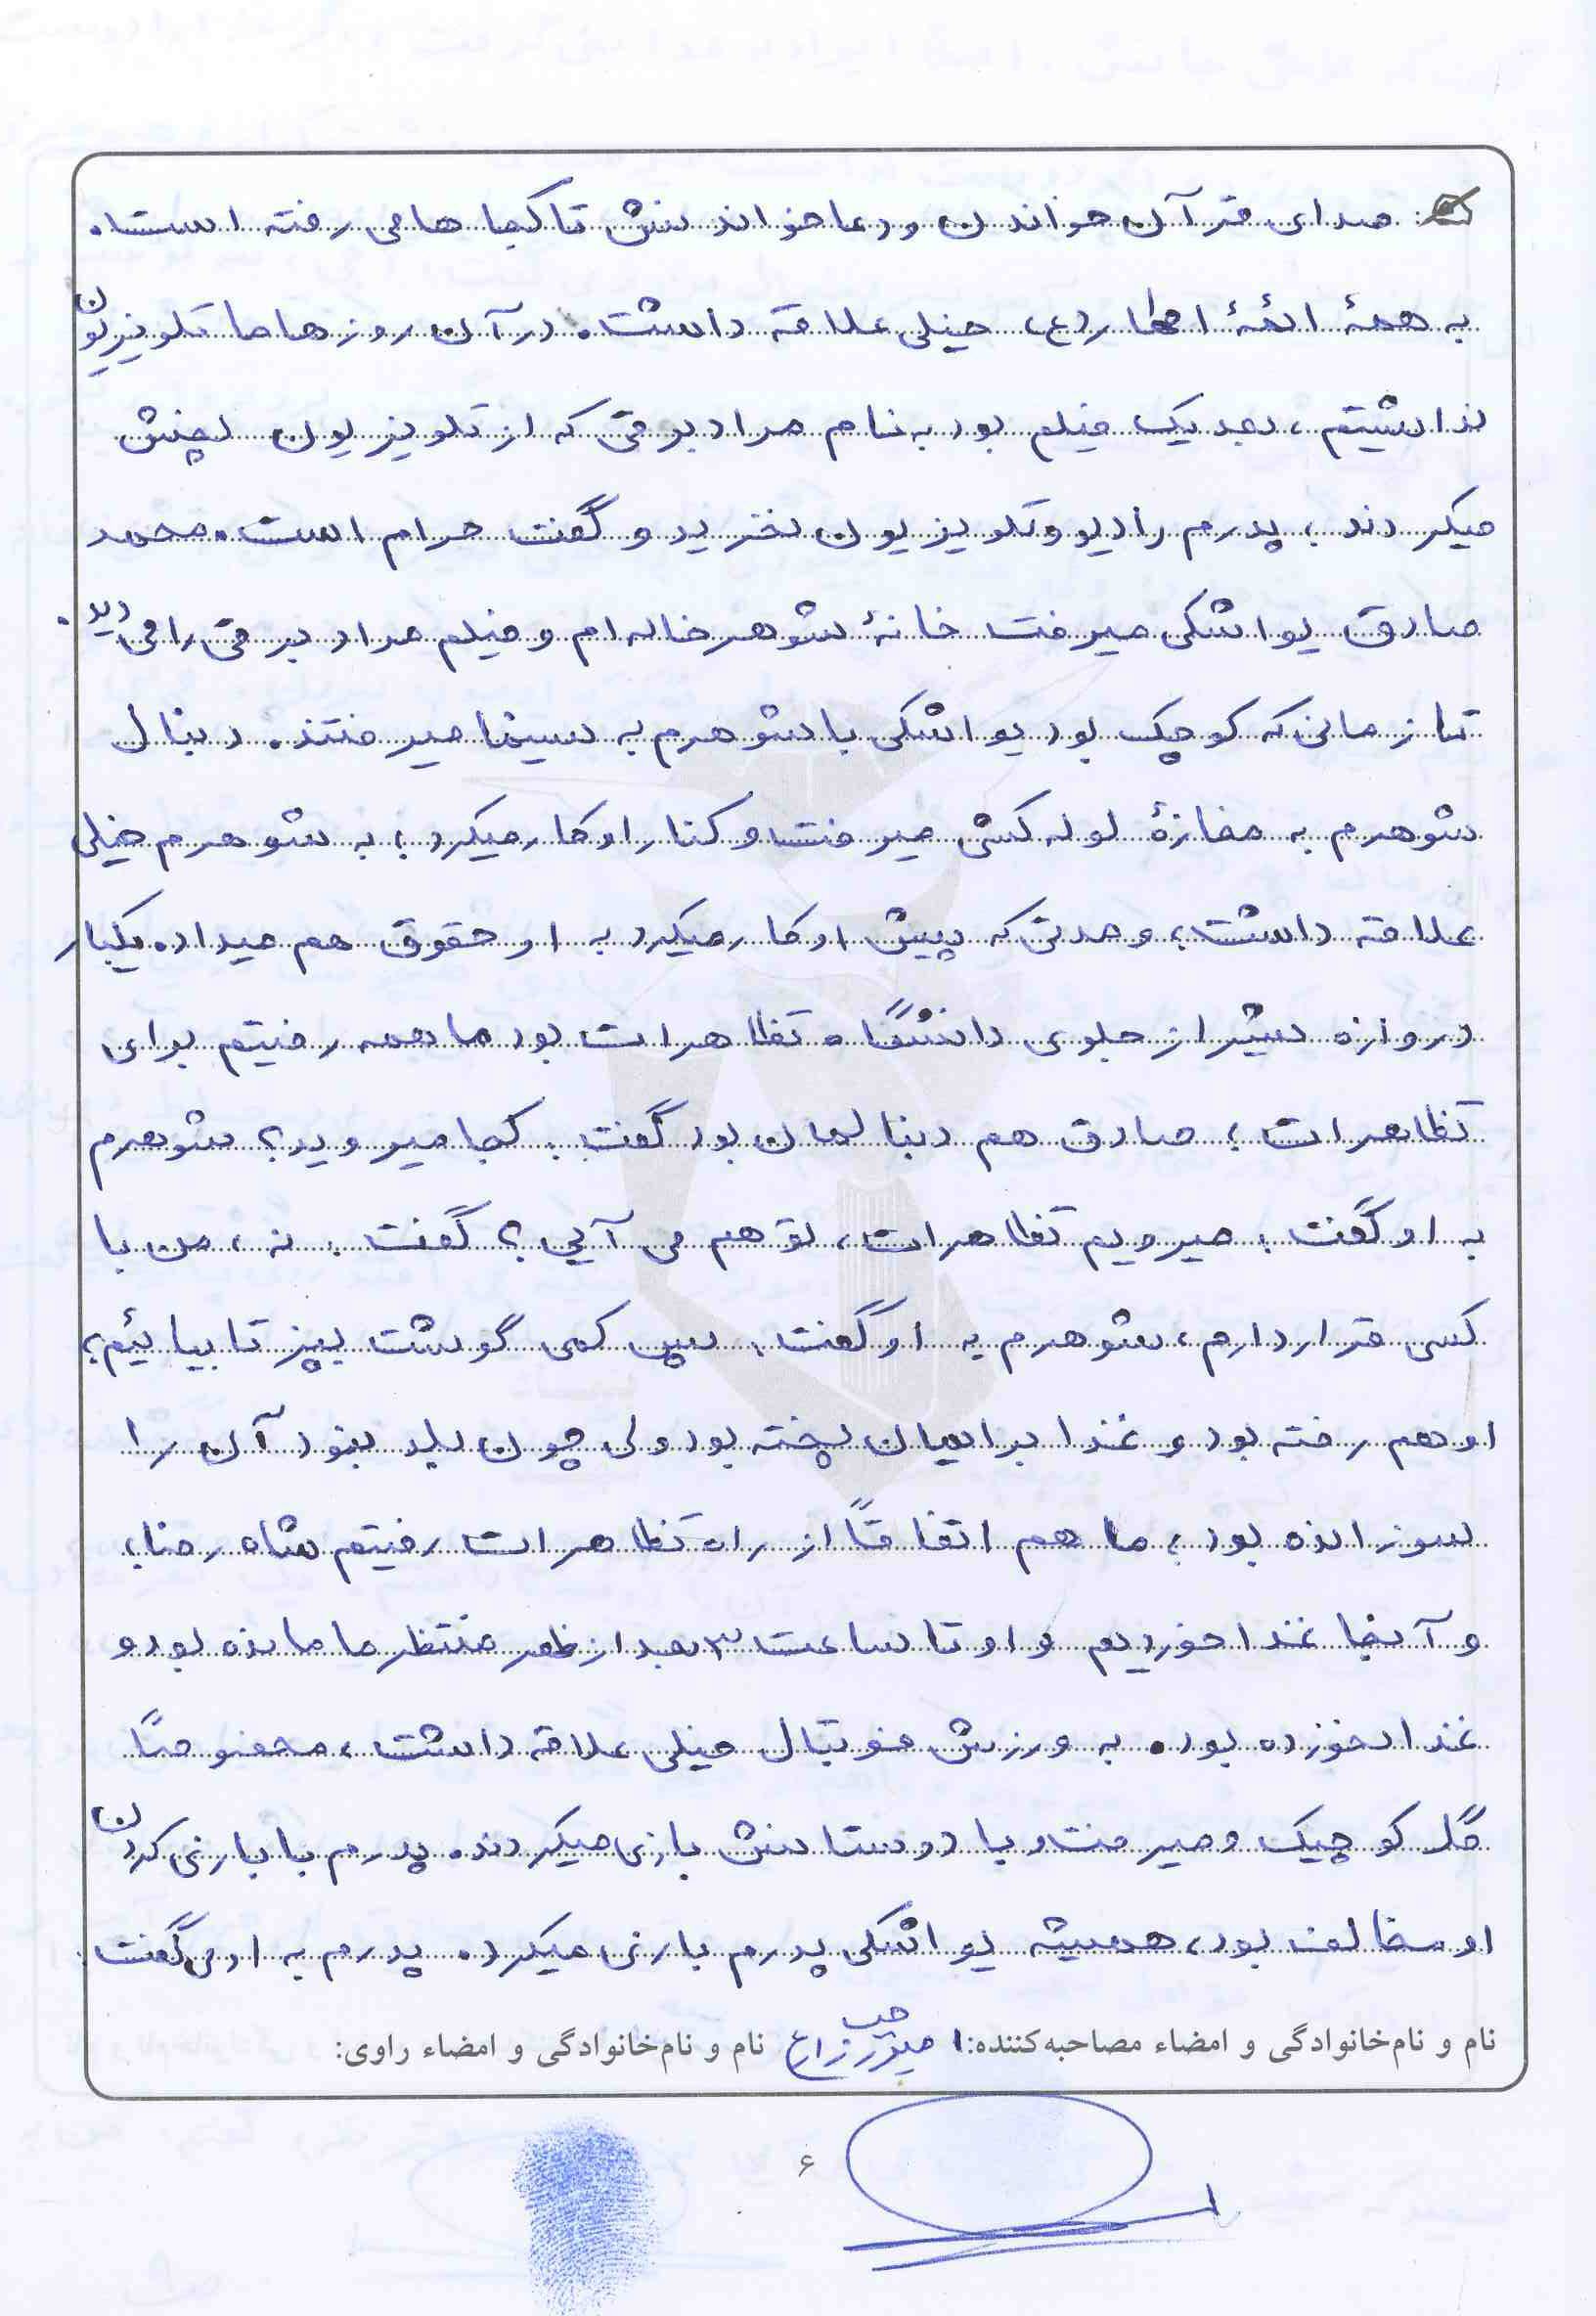 صدای قرآن خواندن و دعا خواندنش تا کجاها می رفته است.
به همهٔ ائمهٔ اطهار (ع) خیلی علاقه داشت. در آن روزها ما تلویزیون
نداشتیم، بعد یک فیلم بود به نام مراد برقی که از تلویزیون پخش
میکردند؛ پدرم رادیو و تلویزیون نخرید و گفت حرام است. محمد
صادق یواشکی میرفت خانهٔ شوهر خاله ام و فیلم مراد برقی را می دید.
تا زمانی که کوچک بود یواشکی با شوهرم به سینما میرفتند. دنبال
شوهرم به مغازهٔ لوله کشی میرفت و کنار او کار میکرد؛ به شوهرم خیلی
علاقه داشت؛ و مدتی که پیش او کار میکرد به او حقوق هم میداد. یکبار
دروازه شیراز جلوی دانشگاه تظاهرات بود ما همه رفتیم برای
تظاهرات؛ صادق هم دنبالمان بود گفت: کجا میروید؟ شوهرم
به او گفت: میرویم تظاهرات، تو هم می آیی؟ گفت: نه، من با
کسی قرار دارم، شوهرم به او گفت: پس کمی گوشت بپز تا بیائیم؛
او هم رفته بود و غذا برایمان پخته بود ولی چون بلد نبود آن را
سوزانده بود؛ ما هم اتفاقاً از راه تظاهرات رفتیم شاه رضا،
و آنجا غذا خوردیم و او تا ساعت ۳ بعد از ظهر منتظر ما مانده بود و
غذا نخورده بود. به ورزش فوتبال خیلی علاقه داشت، مخصوصاً
گل کوچیک و میرفت و با دوستانش بازی میکردند. پدرم با بازی کردن
او مخالف بود، همیشه یواشکی پدرم بازی میکرد. پدرم به او می گفت:
نام و نام‌خانوادگی و امضاء مصاحبه‌کننده: نام و نام‌خانوادگی و امضاء راوی:
۶